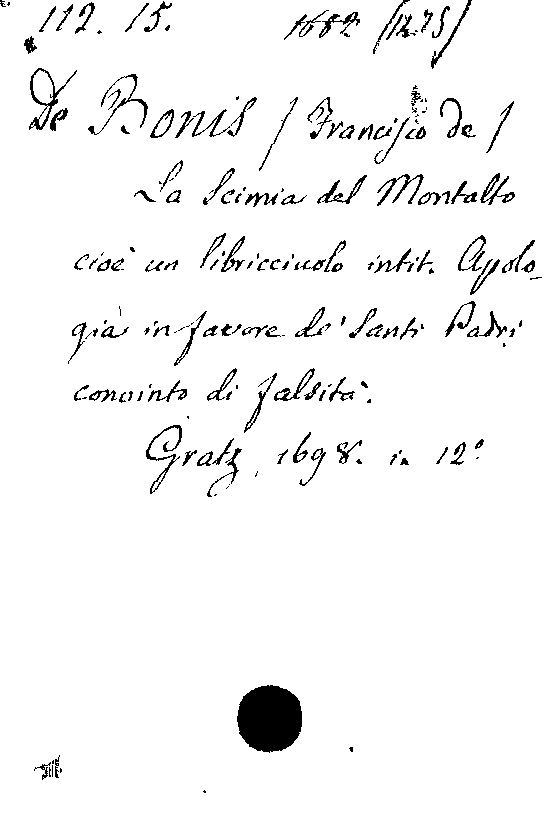 112. 15. 1682 (1275)
De Bonis / Francisco de /
La Scimia del Montalto
cioè un libricciuolo intit. Apolo-
già in favore de' Santi Padri
convinto di falsità.
Gratz, 1698. in 12º